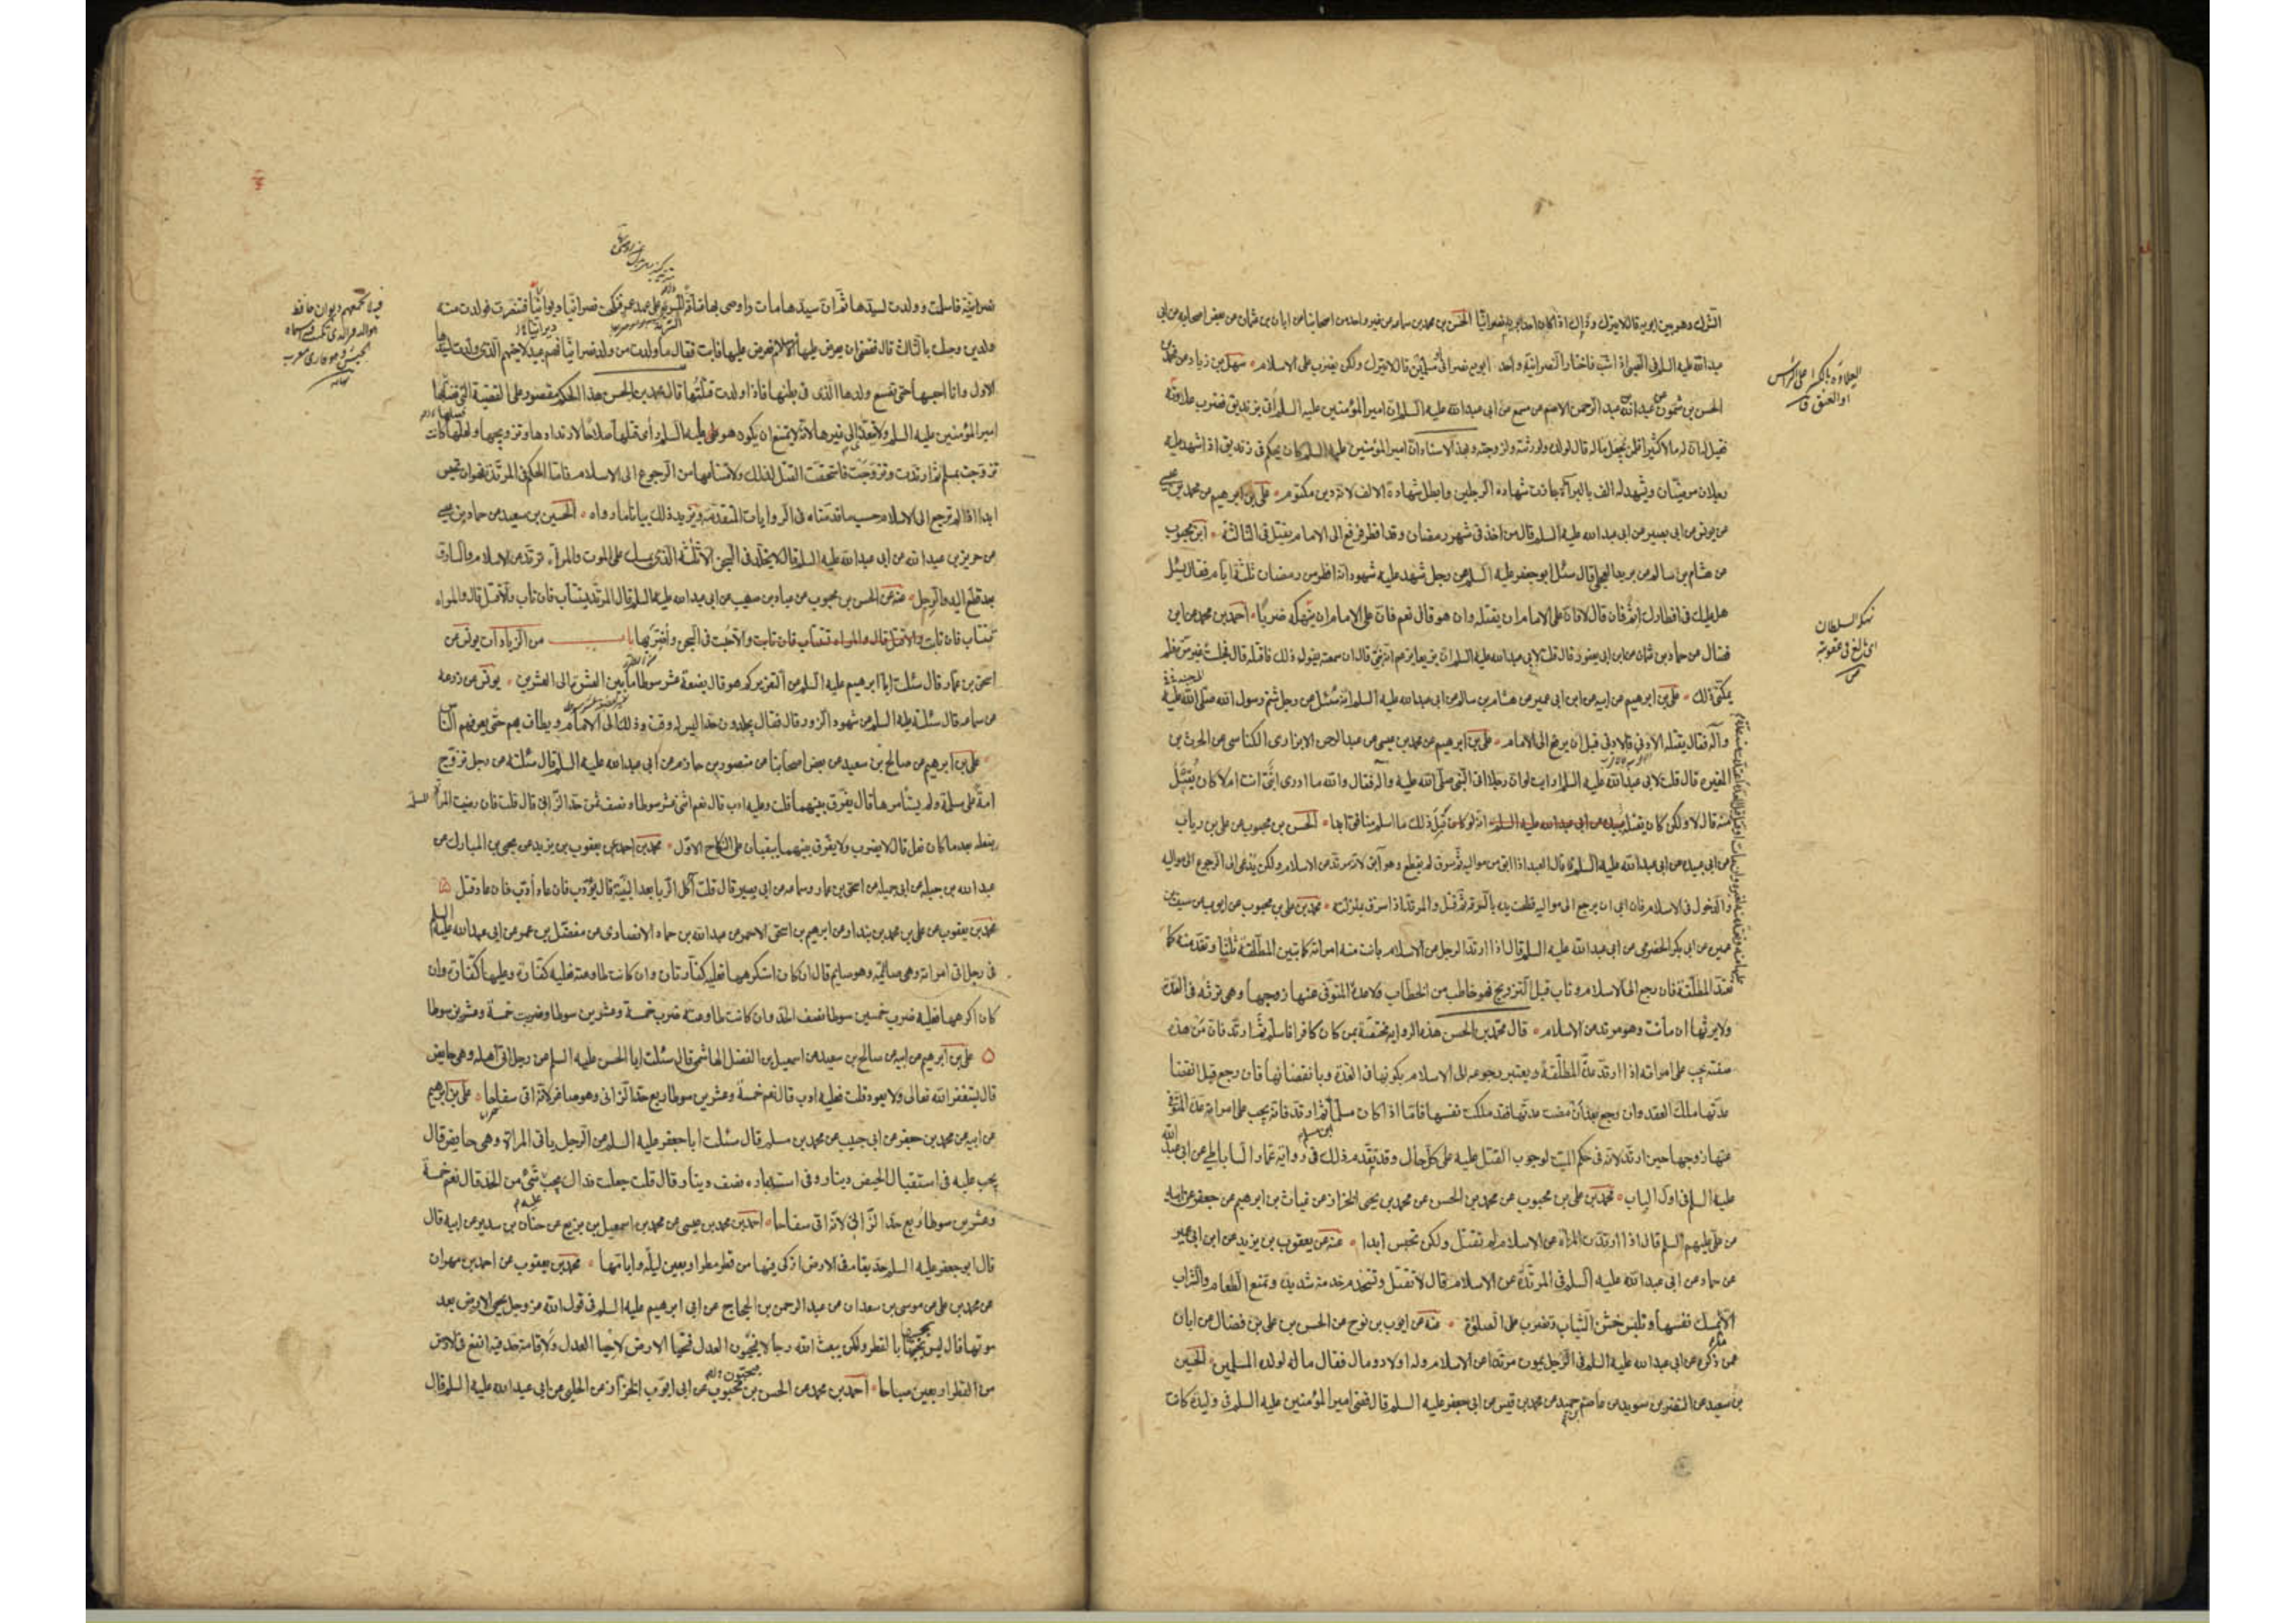 الشرك وهو بين ابويه قال لا يترك وذلك اذا كان احد ابويه نصرانيا الحسن بن محمد بن سماعه عن غير واحد من اصحابنا عن ابان بن عثمان عن بعض اصحابه عن ابي
عبد الله عليه السلم في الصبي اذا شب فاختار النصرانية واحد ابويه نصراني او مسلمين قال لا يترك ولكن يضرب على الاسلام سهل بن زياد عن محمد بن
الحسن بن شمون عن عبد الله بن عبد الرحمن الاصم عن مسمع عن ابي عبد الله عليه السلم ان امير المؤمنين عليه السلم اتي بزنديق فضرب علاوته
فقيل له ان له مالا كثيرا فلمن تجعل ماله قال لولده ولورثته ولزوجته وبهذا الاسناد ان امير المؤمنين عليه السلم كان يحكم في زنديق اذا شهد عليه
رجلان مرضيان وشهد له الف بالبرآة جازت شهادة الرجلين وابطل شهادة الالف لانه دين مكتوم علي بن ابرهيم عن محمد بن عيسى
عن يونس عن ابي بصير عن ابي عبد الله عليه السلم قال من اخذ في شهر رمضان وقد افطر فرفع الى الامام يقتل في الثالثة ابن محبوب
عن هشام بن سالم عن بريد العجلي قال سئل ابو جعفر عليه السلم عن رجل شهد عليه شهود انه افطر من رمضان ثلثة ايام فقال يسئل
هل عليك في افطارك اثم فان قال لا فان على الامام ان يقتله وان هو قال نعم فان على الامام ان ينهكه ضربا احمد بن محمد عن ابن
فضال عن حماد بن عثمان عن ابن ابي يعفور قال قلت لابي عبد الله عليه السلم ان بزيعا يزعم انه نبي قال ان سمعته يقول ذلك فاقتله قال فجلست غير مرة فلم
يمكني ذلك علي بن ابرهيم عن ابيه عن ابن ابي عمير عن هشام بن سالم عن ابي عبد الله عليه السلم انه سئل عن رجل شتم رسول الله صلى الله عليه
وآله فقال يقتله الادنى فالادنى قبل ان يرفع الى الامام علي بن ابرهيم عن محمد بن عيسى عن عبد الرحمن الابزاري الكناسي عن الحرث بن
المغيره قال قلت لابي عبد الله عليه السلم ارايت لو ان رجلا اتى النبي صلى الله عليه وآله فقال والله ما ادري انبي انت ام لا كان يقبل
منه قال لا ولكن كان يقتله انه لو كان قبل ذلك ما اسلم منافق ابدا الحسن بن محبوب عن علي بن رياب
عن ابي عبيده عن ابي عبد الله عليه السلم قال العبد اذا ابق من مواليه ثم سرق لم يقطع وهو آبق لانه مرتد عن الاسلام ولكن يدعى الى الرجوع الى مواليه
والدخول في الاسلام فان ابى ان يرجع الى مواليه قطعت يده بالسرقة ثم قتل والمرتد اذا سرق بمنزلته محمد بن علي بن محبوب عن ايوب عن سيف بن
عميره عن ابي بكر الحضرمي عن ابي عبد الله عليه السلم قال اذا ارتد الرجل عن الاسلام بانت منه امراته كما تبين المطلقة ثلثا وتعتد منه كما
تعتد المطلقة فان رجع الى الاسلام وتاب قبل التزويج فهو خاطب من الخطاب ولا عدة المتوفى عنها زوجها وهي ترثه في العدة
ولا يرثها ان ماتت وهو مرتد عن الاسلام قال محمد بن الحسن هذه الرواية مختصة بمن كان كافرا فاسلم ثم ارتد فان من هذه
صفته يجب على امراته اذا ارتد عدة المطلقة ويعتبر رجوعه الى الاسلام بكونها في العدة وبانقضائها فان رجع قبل انقضا
عدتها ملك العقد وان رجع بعد ان مضت عدتها فقد ملكت نفسها فاما اذا كان مسلما ثم ارتد فانه يجب على امراته عدة المتوفى
عنها زوجها حين ارتد لانه في حكم الميت لوجوب القتل عليه على كل حال وقد تقدم ذلك في رواية عمار الساباطي عن ابي عبد الله
عليه السلم في اول الباب محمد بن علي بن محبوب عن محمد بن الحسن عن محمد بن يحيى الخزاز عن غياث بن ابرهيم عن جعفر عن ابيه
عن علي عليهم السلم قال اذا ارتدت المرأة عن الاسلام لم تقتل ولكن تحبس ابدا عنه عن يعقوب بن يزيد عن ابن ابي عمير
عن حماد عن ابي عبد الله عليه السلم في المرتدة عن الاسلام قال لا تقتل وتستخدم خدمة شديدة وتمنع الطعام والشراب
الا ما تمسك نفسها وتلبس خشن الثياب وتضرب على الصلوة عنه عن ايوب بن نوح عن الحسن بن علي بن فضال عن ابان
عمن ذكره عن ابي عبد الله عليه السلم في الرجل يموت مرتدا عن الاسلام وله اولاد ومال فقال ماله لولده المسلمين الحسين
بن سعيد عن النضر بن سويد عن عاصم بن حميد عن محمد بن قيس عن ابي جعفر عليه السلم قال قضى امير المؤمنين عليه السلم في وليدة كانت
العلاوة بالكسر اعلى الراس
او العنق ق
نهكه السلطان
اي بالغ في عقوبته
ص
نصرانية فاسلمت وولدت لسيدها ثم ان سيدها مات واوصى بها عتاقة السرية على عهد عمر فنكحت نصرانيا ديرانيا فتنصرت فولدت منه
ولدين وحبلت بالثالث قال فقضى ان يعرض عليها الاسلام فعرض عليها فابت فقال ما ولدت من ولد نصرانيا فهم عبيد لاخيهم الذي ولدت لسيدها
الاول وانا احبسها حتى تضع ولدها الذي في بطنها فاذا ولدت قتلتها قال محمد بن الحسن هذا الحكم مقصور على القضية التي فصلها
امير المؤمنين عليه السلم ولا يتعدى الى غيرها لانه لا يمتنع ان يكون هو عليه السلم رأى قتلها صلاحا لارتدادها وتزويجها ولعلها كانت
تزوجت بمسلم ثم ارتدت وتزوجت فاستحقت القتل لذلك ولامتناعها من الرجوع الى الاسلام فاما الحكم في المرتدة فهو ان تحبس
ابدا اذا لم ترجع الى الاسلام حسب ما قدمناه في الروايات المتقدمة ويزيد ذلك بيانا ما رواه الحسين بن سعيد عن حماد بن عيسى
عن حريز عن ابي عبد الله عليه السلم قال لا يخلد في السجن الا ثلثة الذي يمسك على الموت والمرأة ترتد عن الاسلام والسارق
بعد قطع اليد والرجل عنه عن الحسن بن محبوب عن عباد بن صهيب عن ابي عبد الله عليه السلم قال المرتد يستتاب فان تاب والا قتل قال والمراه
تستتاب فان تابت والا حبست في السجن واضر بها باب من الزيادات يونس عن
اسحق بن عمار قال سئلت ابا ابرهيم عليه السلم عن التعزير كم هو قال بضعة عشر سوطا ما بين العشرة الى العشرين يونس عن زرعه
عن سماعه قال سئلته عليه السلم عن شهود الزور قال فقال يجلدون حدا ليس له وقت وذلك الى الامام ويطاف بهم حتى يعرفهم الناس
علي بن ابرهيم عن صالح بن سعيد عن بعض اصحابنا عن منصور بن حازم عن ابي عبد الله عليه السلم قال سئلته عن رجل تزوج
امة على مسلمة ولم يستأمرها قال يفرق بينهما قلت وعليه ادب قال نعم اثنى عشر سوطا ونصف ثمن حد الزاني قال قلت فان رضيت المرأة المسلمة
بفعله بعد ما كان فعل قال لا يضرب ولا يفرق بينهما يبقيان على النكاح الاول محمد بن احمد عن يعقوب بن يزيد عن يحيى بن المبارك عن
عبد الله بن جبله عن ابي جميله عن اسحق بن عمار وسماعه عن ابي بصير قال قلت آكل الربا بعد البينة قال يؤدب فان عاد ادب فان عاد قتل
محمد بن يعقوب عن علي بن محمد بن بندار عن ابرهيم بن اسحق الاحمر عن عبد الله بن حماد الانصاري عن مفضل بن عمر عن ابي عبد الله عليه السلم
في رجل اتى امراته وهي صائمة وهو صايم قال ان كان استكرهها فعليه كفارتان وان كانت طاوعته فعليه كفارة وعليها كفارة وان
كان اكرهها فعليه ضرب خمسين سوطا نصف الحد وان كانت طاوعته ضرب خمسة وعشرين سوطا وضربت خمسة وعشرين سوطا
علي بن ابرهيم عن ابيه عن صالح بن سعيد عن اسمعيل بن الفضل الهاشمي قال سئلت ابا الحسن عليه السلم عن رجل اتى اهله وهي حايض
قال يستغفر الله تعالى ولا يعود قلت فعليه ادب قال نعم خمسة وعشرين سوطا ربع حد الزاني وهو صاغر لانه اتى سفاحا علي بن ابرهيم
عن ابيه عن محمد بن جعفر عن ابي حبيب عن محمد بن مسلم قال سئلت ابا جعفر عليه السلم عن الرجل ياتي المراة وهي حايض قال
يجب عليه في استقبال الحيض دينار وفي استدباره نصف دينار قال قلت جعلت فداك يجب عليه شئ من الحد قال نعم خمسة
وعشرين سوطا ربع حد الزاني لانه اتى سفاحا احمد بن محمد بن عيسى عن محمد بن اسمعيل بن بزيع عن حنان بن سدير عن ابيه قال
قال ابو جعفر عليه السلم حد يقام في الارض ازكى فيها من قطر مطر اربعين ليلة وايامها محمد بن يعقوب عن احمد بن مهران
عن محمد بن علي عن موسى بن سعدان عن عبد الرحمن بن الحجاج عن ابي ابرهيم عليه السلم في قول الله عز وجل يحيي الارض بعد
موتها قال ليس يحييها بالقطر ولكن يبعث الله رجالا يحيون العدل فتحيا الارض لاحيا العدل ولاقامة حد فيه انفع في الارض
من القطر اربعين صباحا احمد بن محمد عن الحسن بن محبوب عن ابي ايوب الخزاز عن الحلبي عن ابي عبد الله عليه السلم قال